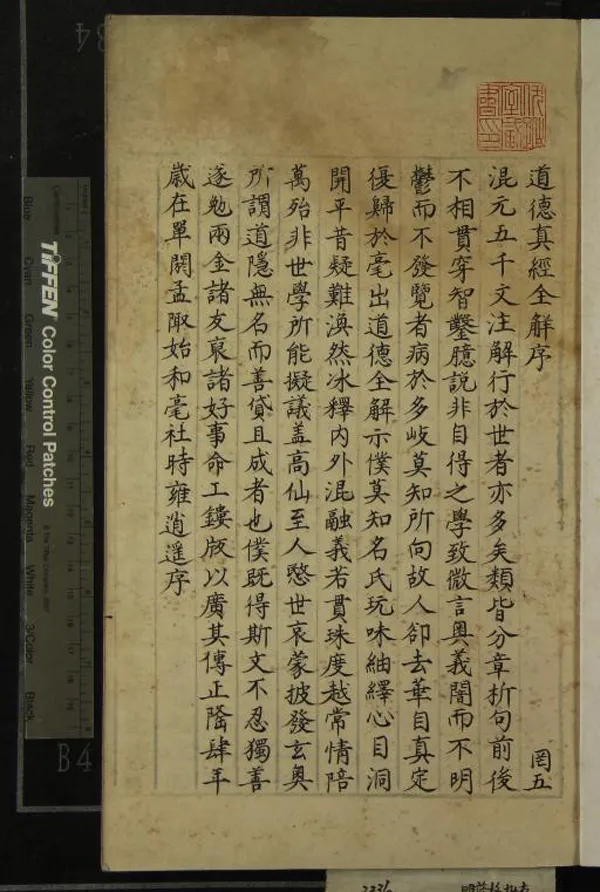 道德真經全解序
罔五
混元五千文注解行於世者亦多矣類皆分章析句前後
不相貫穿智鑿臆說非自得之學致微言奧義闇而不明
鬱而不發覽者病於多岐莫知所向故人卻去華自真定
復歸於亳出道德全解示僕莫知名氏玩味紬繹心目洞
開平昔疑難渙然冰釋內外混融義若貫珠度越常情陪
萬殆非世學所能擬議盖高仙至人愍世哀蒙披發玄奥
所謂道隱無名而善貸且成者也僕既得斯文不忍獨善
遂勉兩金諸友裒諸好事命工鏤版以廣其傳正隆肆年
歲在單閼孟陬始和亳社時雍逍遥序
TIFFEN Color Control Patches
Blue
Cyan
Green
Yellow
Red
Magenta
White
3/Color
Black
B4